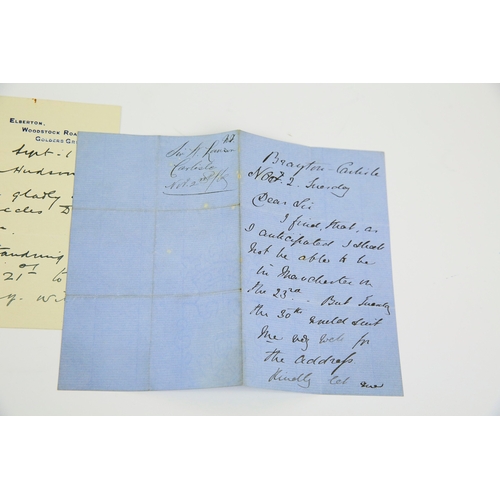 ELBERTON,
WOODSTOCK ROA
GOLDERS GR
Sept. 1
Hudson
gladly
standing
21st to
y. wi
Carlisle
Nov. 2nd
Brayton Carlisle
Nov. 2. Tuesday
Dear Sir
I find, that, as
I anticipated I shall
not be able to be
in Manchester on
the 23rd. But Tuesday
the 30th would suit
me very well for
the address
Kindly let me